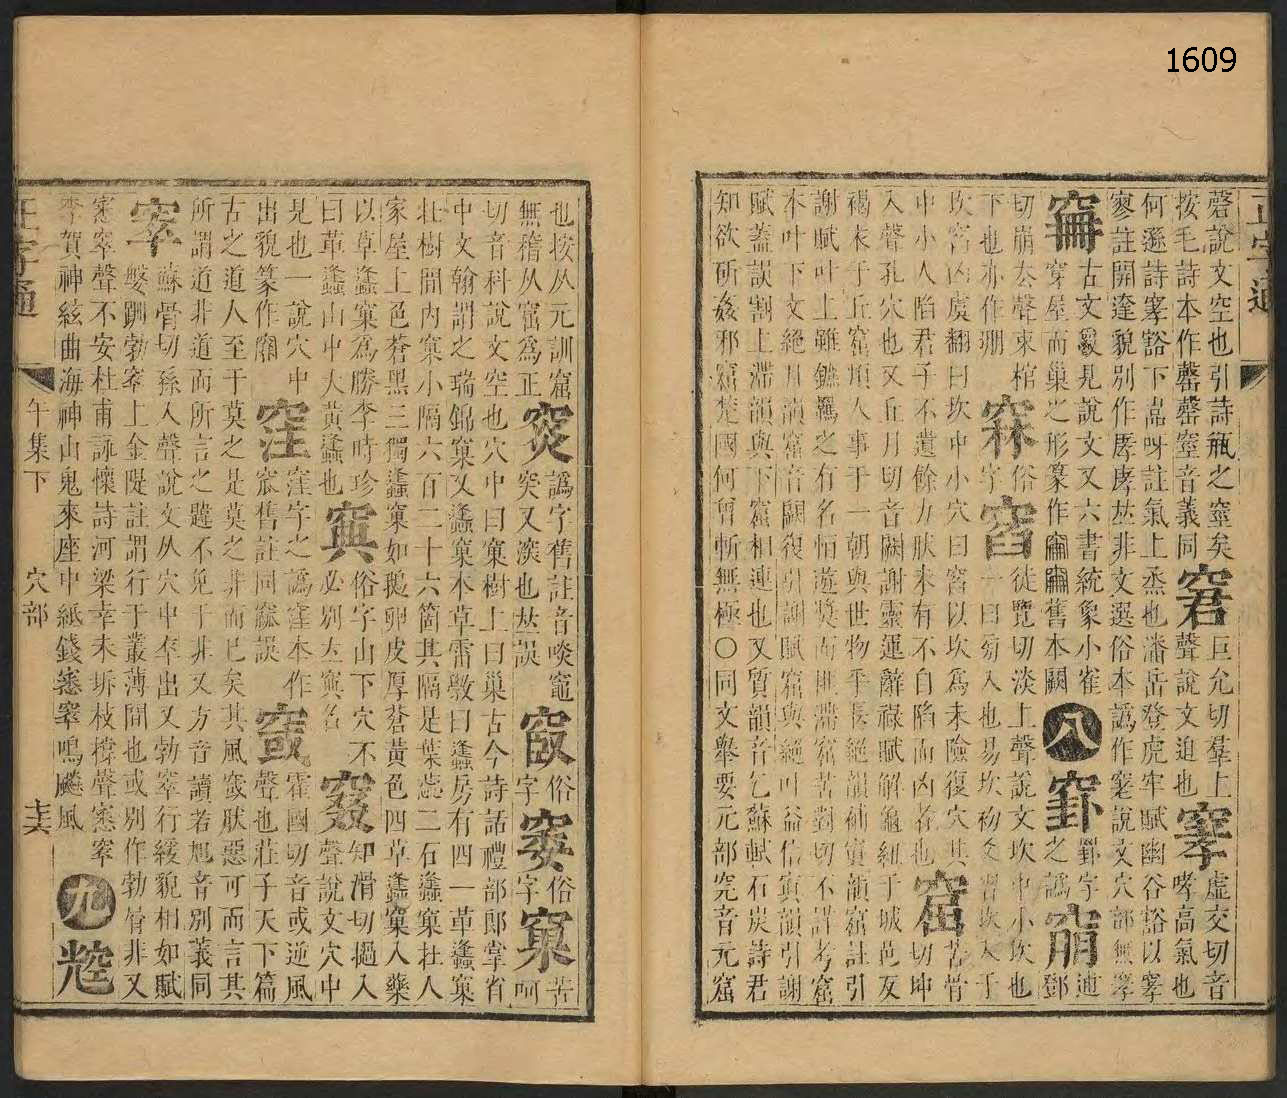 1609
正字通
磬說文空也引詩瓶之窒矣窘巨允切羣上聲說文迫也窙虛交切音
按毛詩本作罄罄窒音義同哮高氣也
何遜詩窙豁下嵩呀註氣上烝也潘岳登虎牢賦幽谷豁以窙
寥註開達貌別作庨㡏𠀤非文選俗本譌作窙說文穴部無窙
古文叕見說文又六書統象小雀
穿屋而巢之形篆作舊本闕八之譌鄧
切崩去聲束棺俗徒覽切淡上聲說文坎中小坎也
下也亦作堋字一曰菊入也易坎初爻習坎入于
坎窞凶虞翻曰坎中小穴曰窞以坎爲未險復穴其窟苦骨
中小人陷君子不遺餘力肰未有不自陷而凶者也切坤
入聲孔穴也又丘月切音闕謝靈運辭祿賦解龜紐于城邑反
褐衣于丘窟頃人事于一朝與世物乎長絕韻補窴韻窟註引
謝賦叶上雖鐫羈之有名恒遊奬而匪滯窟苦對切不詳考窟
本叶下文絕月韻窟音闕復引謝賦窟與絕叶益信寘韻引謝
賦蓋誤割上滯韻與下窟相連也又質韻音乞蘇軾石炭詩君
知欲斫姦邪窟楚國何曾斬無極〇同文舉要元部窕音元窟
也按从元訓窟譌字舊註音啖竈俗俗苦
無稽从窟爲正突又深也𠀤誤字字窠呵
切音科說文空也穴中曰窠樹上曰巢古今詩話禮部郎掌省
中文翰謂之瑞錦窠又蠭窠本草雷斅曰蠭房有四一革蠭窠
在樹間內窠小隔六百二十六箇其隔是葉蕊二石蠭窠在人
家屋上色蒼黑三獨蠭窠如鵝卵皮厚蒼黃色四草蠭窠入藥
以草蠭窠爲勝李時珍俗字山下穴不知滑切揾入
曰革蠭山中大黃蠭也必別立窴名聲說文穴中
見也一說穴中窪字之譌窪本作霍國切音或逆風
出貌篆作窪窊舊註同窳誤窢聲也莊子天下篇
古之道人至于莫之是莫之非而已矣其風窢肰惡可而言其
所謂道非道而所言之韙不免于非又方音讀若旭音別義同
窣蘇骨切孫入聲說文从穴中卒出又勃窣行緩貌相如賦
媻跚勃窣上金隄註謂行于叢薄間也或別作勃䯇非又
窸窣聲不安杜甫詠懷詩河梁幸未坼枝撐聲窸窣
李賀神絃曲海神山鬼來座中紙錢窸窣鳴飈風九
正字通
午集下
穴部